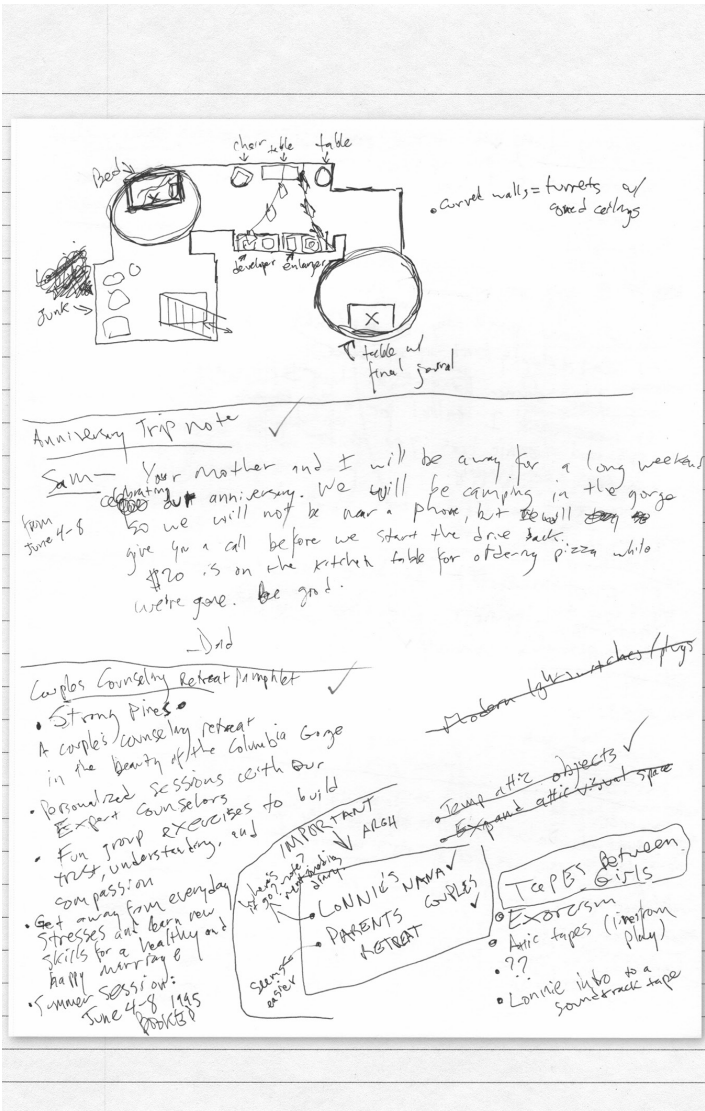 chair table table
Bed
• curved walls = turrets w/
coned ceilings
developer enlarger
Junk
X
X
table w/
final journal
Anniversary Trip note ✓
Sam— Your mother and I will be away for a long weekend
celebrating our anniversary. We will be camping in the gorge
from
June 4-8
so we will not be near a phone, but will
give you a call before we start the drive back.
$20 is on the kitchen table for ordering pizza while
we're gone. Be good.
—Dad
Couples Counseling Retreat Pamphlet ✓
• Strong Pines •
A couple's counseling retreat
in the beauty of the Columbia Gorge
• Personalized sessions with our
Expert counselors
• Fun group exercises to build
trust, understanding, and
compassion
• Get away from everyday
stresses and learn new
skills for a healthy and
happy marriage
• Summer Session:
June 4-8 1995
BOOKED
Modern light switches/plugs
• Temp attic objects ✓
• Expand attic visual space
IMPORTANT
ARGH
where's
it go? note?
mentioning
diary
• LONNIE'S NANA ✓
• PARENTS COUPLES ✓
RETREAT
seems
easier
TAPES Between
Girls
• Exorcism
• Attic tapes (lines from
play)
• ??
• Lonnie intro to a
soundtrack tape